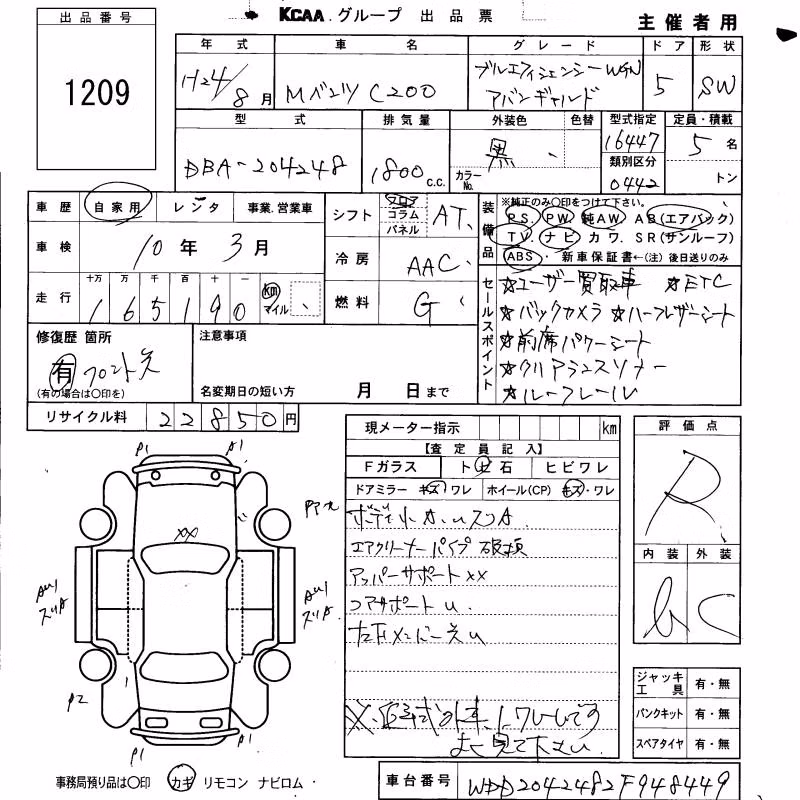 KCAA.グループ 出品票
主催者用
出品番号
1209
年式 車名 グレード ドア 形状
H24/8月 Mベンツ C200 ブルーエフィシェンシーWGN アバンギャルド 5 SW
型式 排気量 外装色 色替 型式指定 定員・積載
DBA-204248 1800 c.c. 黒 カラーNo. 16447 5名
類別区分 0442 トン
車歴 自家用 レンタ 事業.営業車
シフト フロア コラム パネル AT
車検 10年 3月
冷房 AAC
走行 十万 万 千 百 十 一 km マイル
1 6 5 1 9 0
燃料 G
装備品
※純正のみ〇印をつけて下さい。
PS PW 純AW AB(エアバック)
TV. ナビ カワ. SR(サンルーフ)
ABS・ 新車保証書←(注)後日送りのみ
セールスポイント
☆ユーザー買取車 ☆ETC
☆バックカメラ ☆ハーフレザーシート
☆前席パワーシート
☆クリアランスソナー
☆ルーフレール
修復歴 箇所
有 フロント
(有の場合は〇印を)
注意事項
名変期日の短い方 月 日まで
リサイクル料 22850円
現メーター指示 km
【査定員記入】
Fガラス トビ石 ヒビワレ
ドアミラー キズ・ワレ ホイール(CP) キズ・ワレ
エアクリーナーパイプ 破損
アッパーサポート XX
コアサポート U.
よく見て下さい.
評価点
R
内装 外装
C
ジャッキ工具 有・無
パンクキット 有・無
スペアタイヤ 有・無
P1 A1
XX
AU1 AU1
P2
P1 P1
事務局預り品は〇印 カギ リモコン ナビロム・
車台番号 WDD2042482F948449